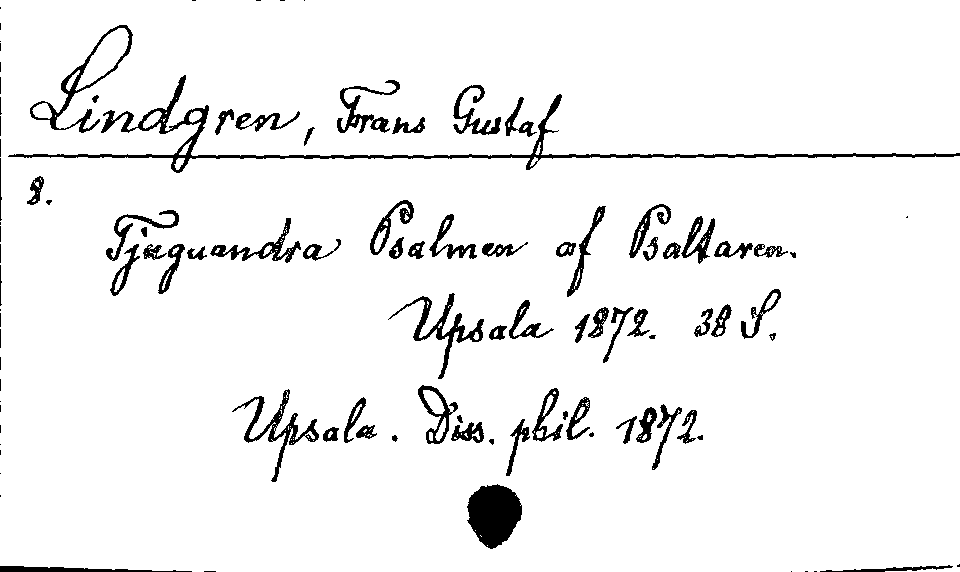 Lindgren, Frans Gustaf
8.
Tjuguandra Psalmen af Psaltaren.
Upsala 1872. 38 S.
Upsala. Diss. phil. 1872.